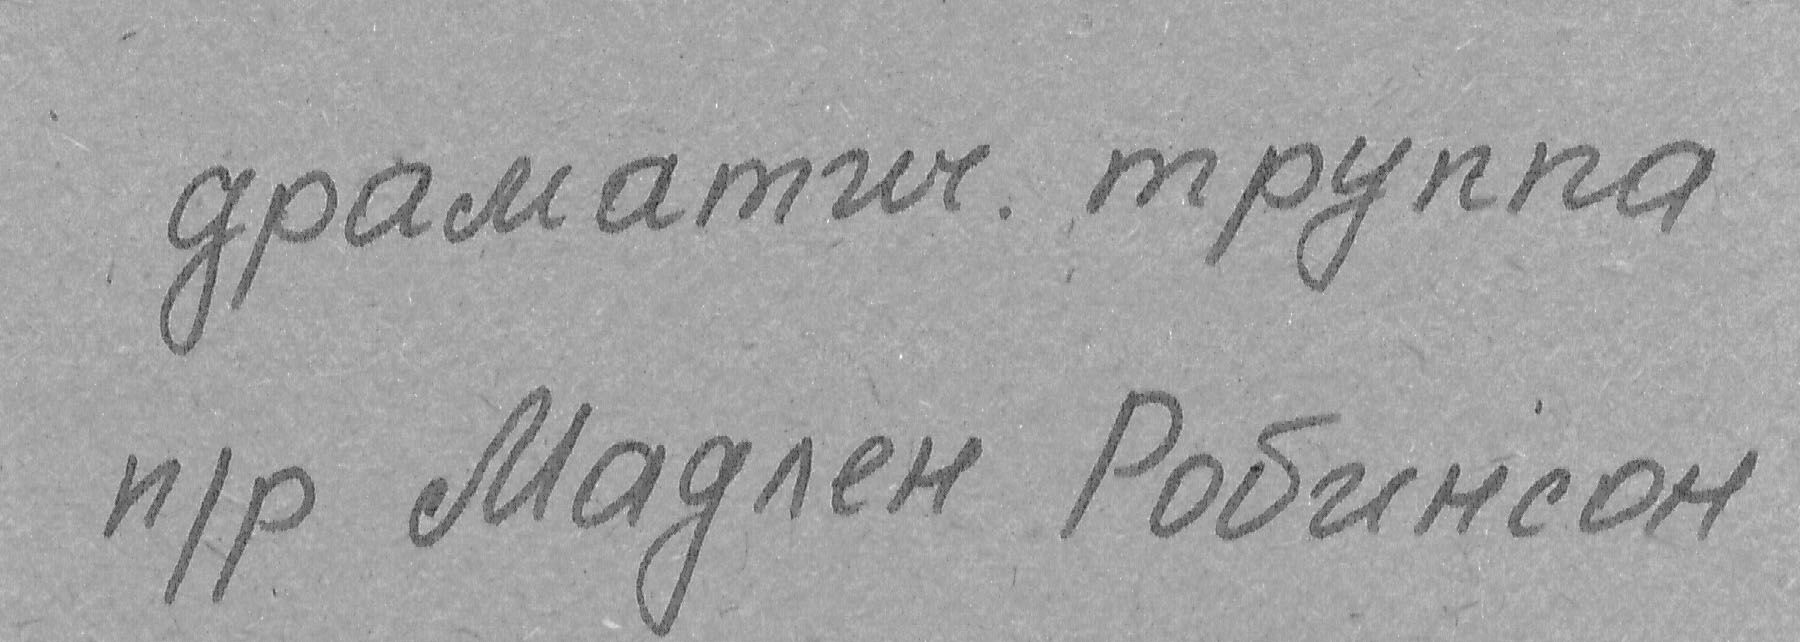 драматич. труппа
п/р Мадлен Робинсон